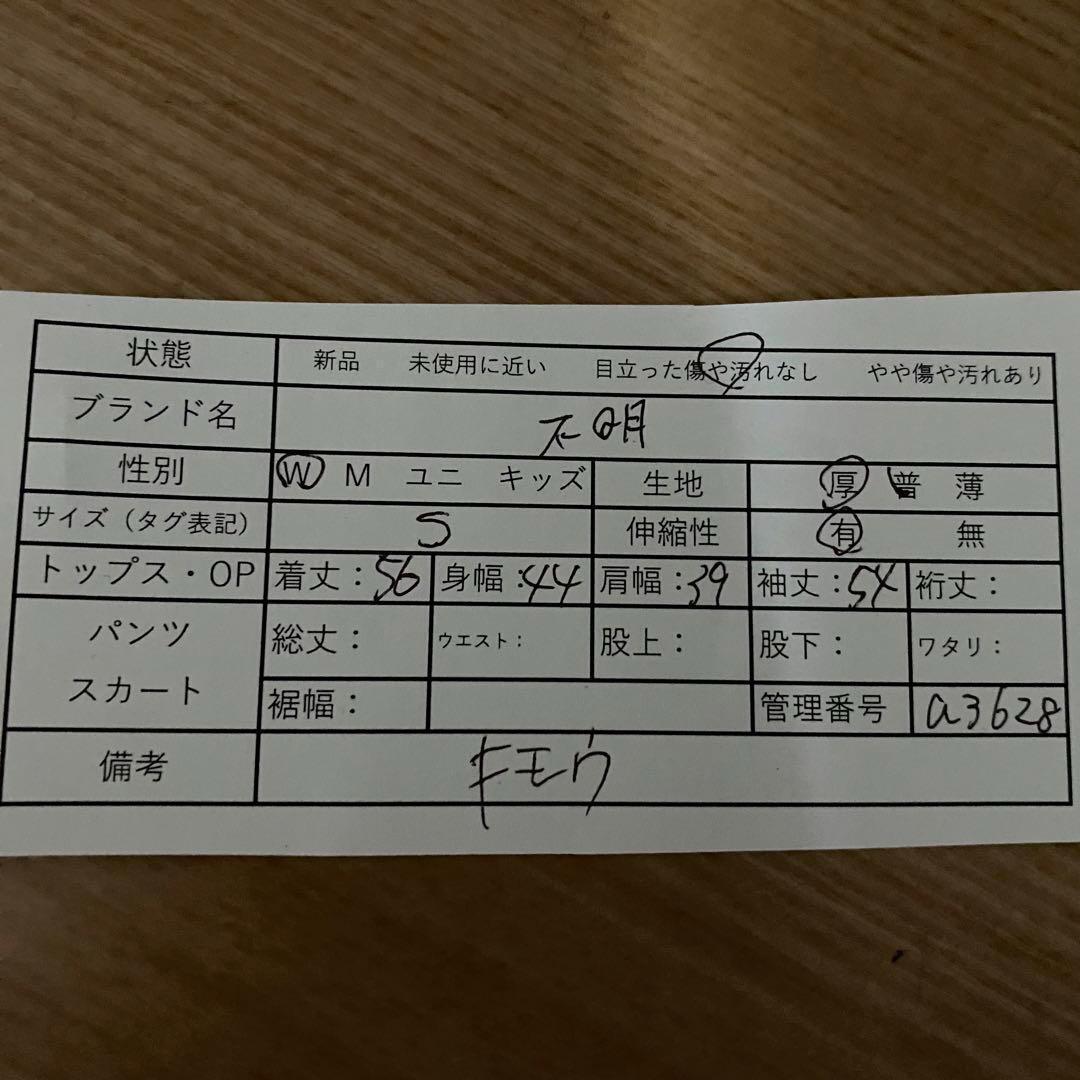 状態 新品 未使用に近い 目立った傷や汚れなし やや傷や汚れあり
ブランド名 不明
性別 W M ユニ キッズ 生地 厚 普 薄
サイズ（タグ表記） S 伸縮性 有 無
トップス・OP 着丈：56 身幅：44 肩幅：39 袖丈：54 裄丈：
パンツ 総丈： ウエスト： 股上： 股下： ワタリ：
スカート 裾幅： 管理番号 a3628
備考 キモウ